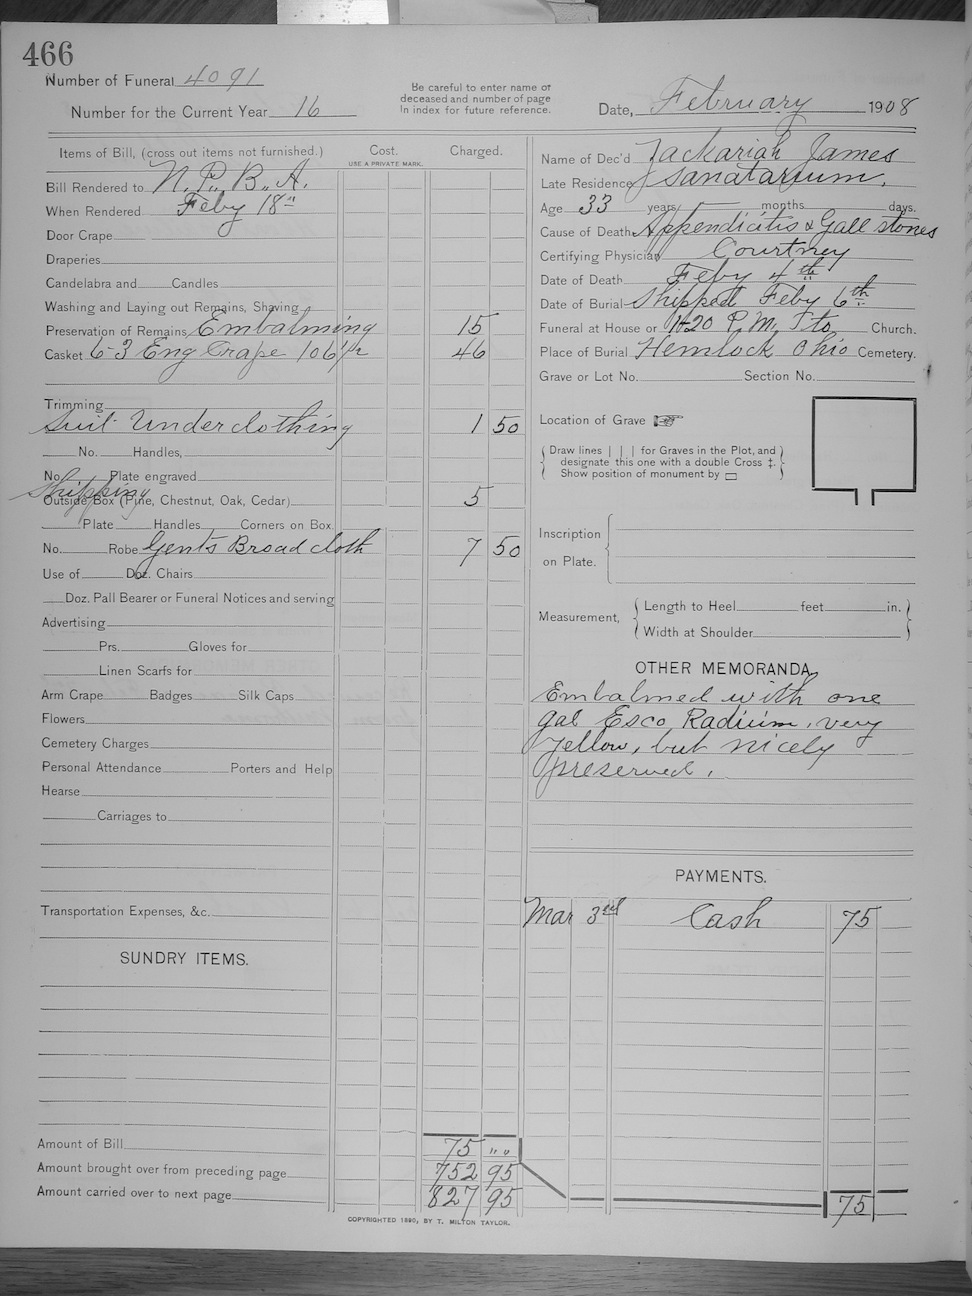 466
Number of Funeral 4091
Number for the Current Year 16
Be careful to enter name of
deceased and number of page
in index for future reference.
Date, February 1908
Items of Bill, (cross out items not furnished.)
Cost.
USE A PRIVATE MARK.
Charged.
Bill Rendered to N. P. B. A.
When Rendered Feby 18"
Door Crape
Draperies
Candelabra and Candles
Washing and Laying out Remains, Shaving
Preservation of Remains Embalming 15
Casket 6-3 Eng Crape 106 46
Trimming
Suit Underclothing 1 50
No. Handles,
No. Plate engraved
Shipping
Outside Box (Pine, Chestnut, Oak, Cedar) 5
Plate Handles Corners on Box.
No. Robe Gents Broadcloth 7 50
Use of Doz. Chairs
Doz. Pall Bearer or Funeral Notices and serving
Advertising
Prs. Gloves for
Linen Scarfs for
Arm Crape Badges Silk Caps
Flowers
Cemetery Charges
Personal Attendance Porters and Help
Hearse
Carriages to
Transportation Expenses, &c.
SUNDRY ITEMS.
Amount of Bill 75 " "
Amount brought over from preceding page 752 95
Amount carried over to next page 827 95
Name of Dec'd Zackariah James
Late Residence Sanatarium.
Age 33 years — months days.
Cause of Death Appendicitis & Gall stones
Certifying Physician Courtney
Date of Death Feby 4th
Date of Burial Shipped Feby 6th
Funeral at House or 1-20 P.M. to Church.
Place of Burial Hemlock Ohio Cemetery.
Grave or Lot No. Section No.
Location of Grave ☞
Draw lines | | | for Graves in the Plot, and
designate this one with a double Cross ‡.
Show position of monument by ▭
Inscription
on Plate.
Measurement, Length to Heel feet in.
Width at Shoulder
OTHER MEMORANDA
Embalmed with one
gal Esco Radium, very
yellow, but nicely
preserved.
PAYMENTS.
Mar 3rd Cash 75
75
COPYRIGHTED 1890, BY T. MILTON TAYLOR.